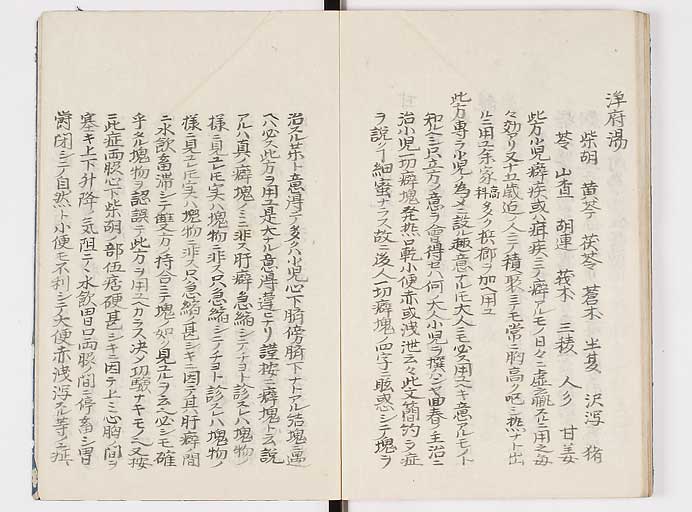 浄府湯
柴胡 黄芩 茯苓 蒼朮 半夏 沢瀉 猪
苓 山査 胡連 莪朮 三稜 人参 甘姜
此方小児癖疾或ハ疳疾ニテ癖アルモノ日々ニ虚羸スルニ用之毎
々効アリ又十五歳迄ノ人ニテ積聚ニモ常ニ胸高ク呃シ熱ナト出
ルニ用
此方専ラ小児ノ為メニ設ル趣意ナレ𪜈大人ニモ必ス用ユヘキ意アルモノト
知ルヘシ只立方ノ意ヲ會得セハ何ソ大人小児ヲ撰ハンヤ回春ノ主治ニ
治小児一切癖塊発熱口乾小便赤或洩泄云々此文簡約ヲ症
ヲ説ク丁細蜜ナラス故ニ後人一切癖塊ノ四字ニ眩惑シテ塊ヲ
治スル𫞂ト意得テ多クハ小児心下臍傍臍下ナトアル結塊ニ遇
ヘハ必ス此方ヲ用ユ是大ナル意得違ヒナリ謹按ニ癖塊ト云説
アルハ真ノ癖塊ノミニ非ス肝癖急縮シテチヨト診スレハ塊物ノ
様ニ見ユレ𪜈実ハ塊物ニ非ス只急縮シテチヨト診スレハ塊物ノ
様ニ見ユレ𪜈実ハ塊物ニ非ス只急縮ノ甚シキニ因テ其肝癖ノ間
ニ水飲畜滞シテ雙方持合ニテ塊ノ如ク見ユル
手タル塊物ヲ認誤テ此方ヲ用ユヘカラス決シテ功験ナキモノ也又按
ニ此症両股心下柴胡ノ部伍痞硬甚シキニ因テ上ハ心胸ノ間ヲ
塞キ上下升降ノ気阻テヽ水飲胃口両股ノ間ニ停畜シ胃
蘭閉シテ自然ト小便モ不利シテ大便赤洩瀉スル等ノ症